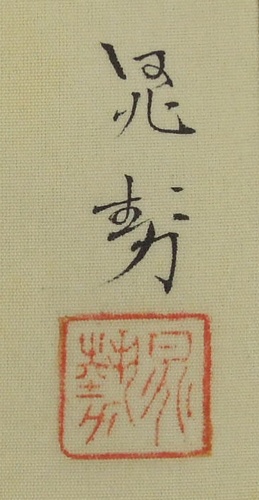 晁勢
晁勢